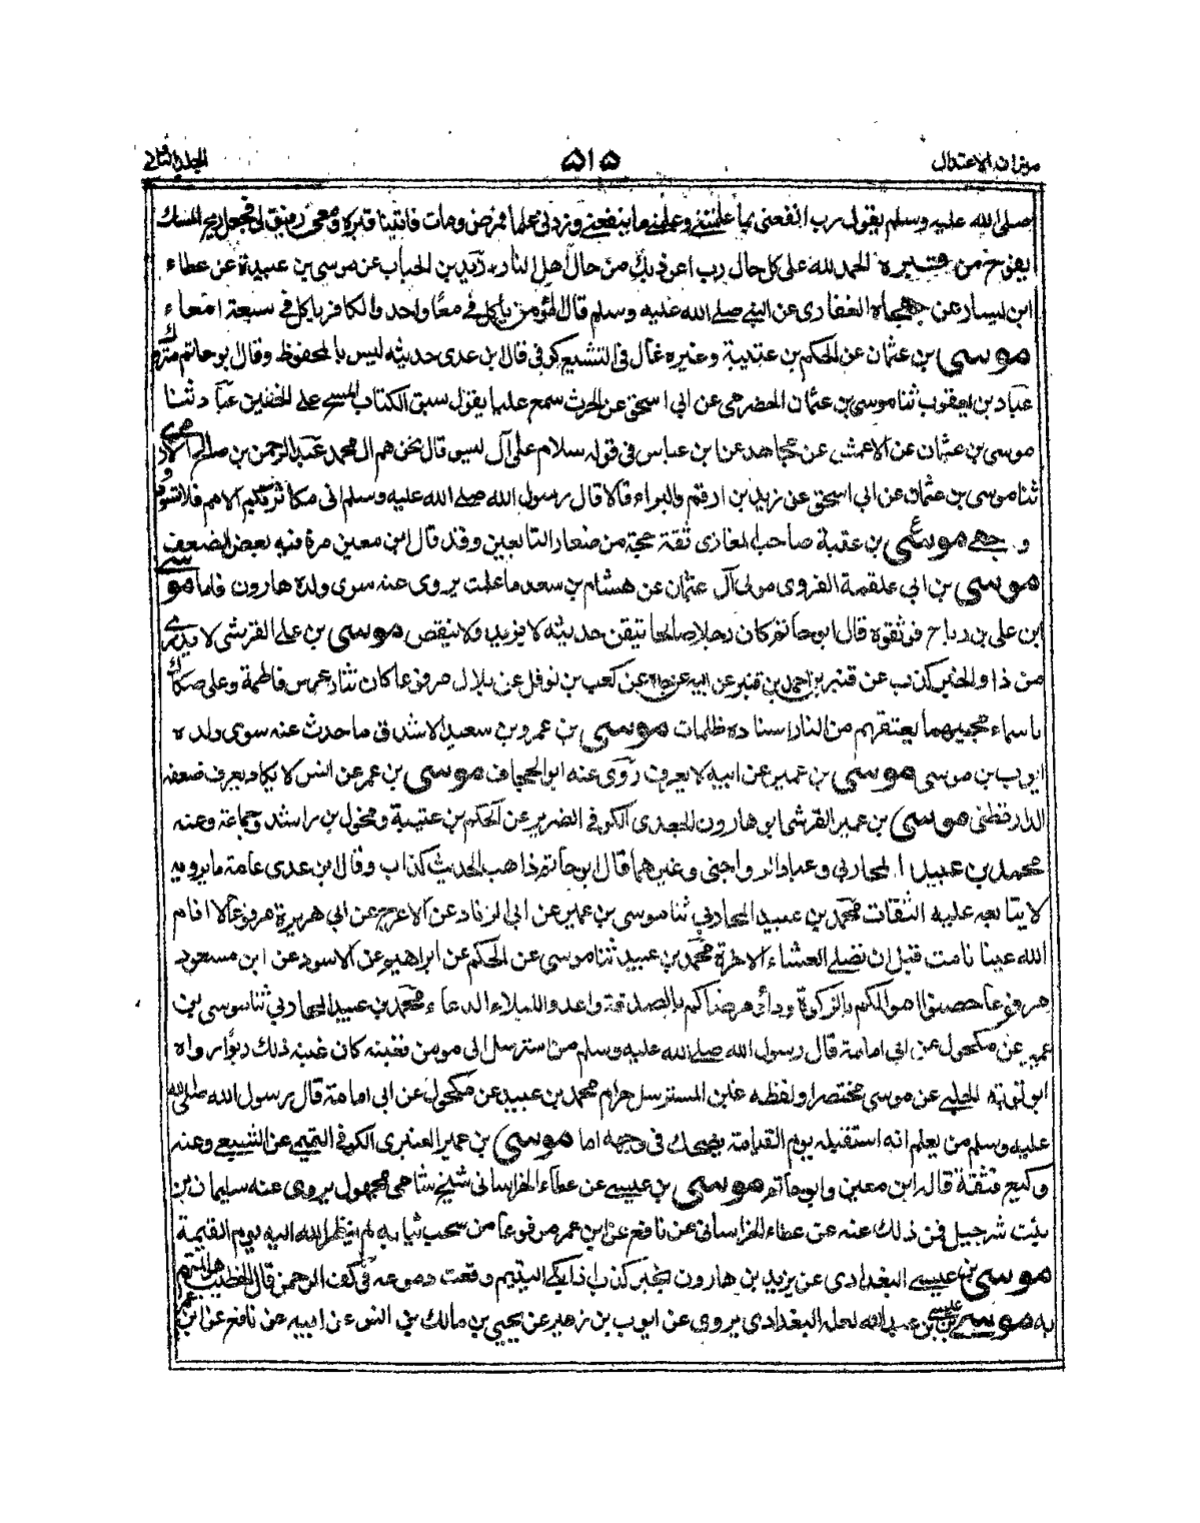 ميزان الاعتدال ۵۱۵ الجلد الثاني
صلى الله عليه وسلم يقول رب انفعني بما علمتني وعلمني ما ينفعني وزدني علما فمرض ومات فاتينا قبره ومعي رفيق لي فجعل ريح المسك
يفوح من قبره الحمد لله على كل حال رب اعوذ بك من حال أهل النار زيد بن الحباب عن موسى بن عبيدة عن عطاء
ابن يسار عن جهجاه الغفاري عن النبي صلى الله عليه وسلم قال المؤمن ياكل في معا واحد والكافر ياكل في سبعة امعاء
موسى بن عثمان عن الحكم بن عتيبة وغيره غال في التشيع كوفي قال ابن عدي حديثه ليس بالمحفوظ وقال بو حاتم متروك
عباد بن يعقوب ثنا موسى بن عثمان الحضرمي عن ابي اسحق عن الحرث سمع عليا يقول سبق الكتاب المسح على الخفين عباد ثنا
موسى بن عثمان عن الاعمش عن مجاهد عن ابن عباس في قوله سلام على آل يسو قال نحن هم ال محمد عبد الرحمن بن صالح الازدي
ثنا موسى بن عثمان عن ابي اسحق عن زيد بن ارقم والبراء قالا قال رسول الله صلى الله عليه وسلم اني مكاثر بكم الامم فلا تسودوا
وجهي موسى بن عقبة صاحب المغازي ثقة حجة من صغار التابعين وقد قال ابن معين مرة فيه بعض الضعف
موسى بن ابي علقمة الفروي مولى آل عثمان عن هشام بن سعد ما علمت يروى عنه سوى ولده هارون فاما موسى
ابن علي بن رباح فوثقوه قال ابو حاتم كان رجلا صالحا يتقن حديثه لا يزيد ولا ينقص موسى بن علي القرشي لا يدرى
من ذا والخبر كذب عن قنبر بن احمد بن قنبر عن ابيه عن جده عن كعب بن نوفل عن بلال مرفوعا كان نثار عرس فاطمة وعلي صكاك
باسماء محبيهما يعتقهم من النار اسناده ظلمات موسى بن عمرو بن سعيد الاشدق ما حدث عنه سوى ولده
ايوب بن موسى موسى بن عمير عن ابيه لا يعرف روى عنه ابو الجحاف موسى بن عمر عن انس لا يكاد يعرف ضعفه
الدارقطني موسى بن عمير القرشي ابو هارون الجعدي الكوفي الضرير عن الحكم بن عتيبة ومخول بن راشد وجماعة وعنه
محمد بن عبيد المحاربي وعباد الرواجني وغيرهما قال ابو حاتم ذاهب الحديث كذاب وقال ابن عدي عامة ما يرويه
لا يتابعه عليه الثقات محمد بن عبيد المحاربي ثنا موسى بن عمير عن ابي الزناد عن الاعرج عن ابي هريرة مرفوعا لا انام
الله عينا نامت قبل ان تصلي العشاء الاخرة محمد بن عبيد ثنا موسى عن الحكم عن ابراهيم عن الاسود عن ابن مسعود
مرفوعا حصنوا اموالكم بالزكوة وداووا مرضاكم بالصدقة واعدوا للبلاء الدعاء محمد بن عبيد المحاربي ثنا موسى بن
عمير عن مكحول عن ابي امامة قال رسول الله صلى الله عليه وسلم من استرسل الى مومن فغبنه كان غبنه ذلك ربوا رواه
ابو توبة الحلبي عن موسى مختصرا ولفظه غبن المسترسل حرام محمد بن عبيد عن مكحول عن ابي امامة قال رسول الله صلى الله
عليه وسلم من يعلم انه استقبله يوم القيامة يضحك في وجهه اما موسى بن عمير العنبري الكوفي التميمي عن الشعبي وعنه
وكيع فثقة قاله ابن معين وابو حاتم موسى بن عيسى عن عطاء الخراساني شيخ شامي مجهول يروي عنه سليمان بن
بنت شرجيل فمن ذلك عنه عن عطاء الخراساني عن نافع عن ابن عمر مرفوعا من سحب ثيابه لم ينظر الله اليه يوم القيمة
موسى بن عيسى البغدادي عن يزيد بن هارون بخبر كذب اذا بكى اليتيم وقعت دموعه في كف الرحمن قال الخطيب هو المتهم
به موسى بن عيسى بن عبد الله لعله البغدادي يروي عن ايوب بن زهير عن يحيى بن مالك بن انس عن ابيه عن نافع عن ابن عمر